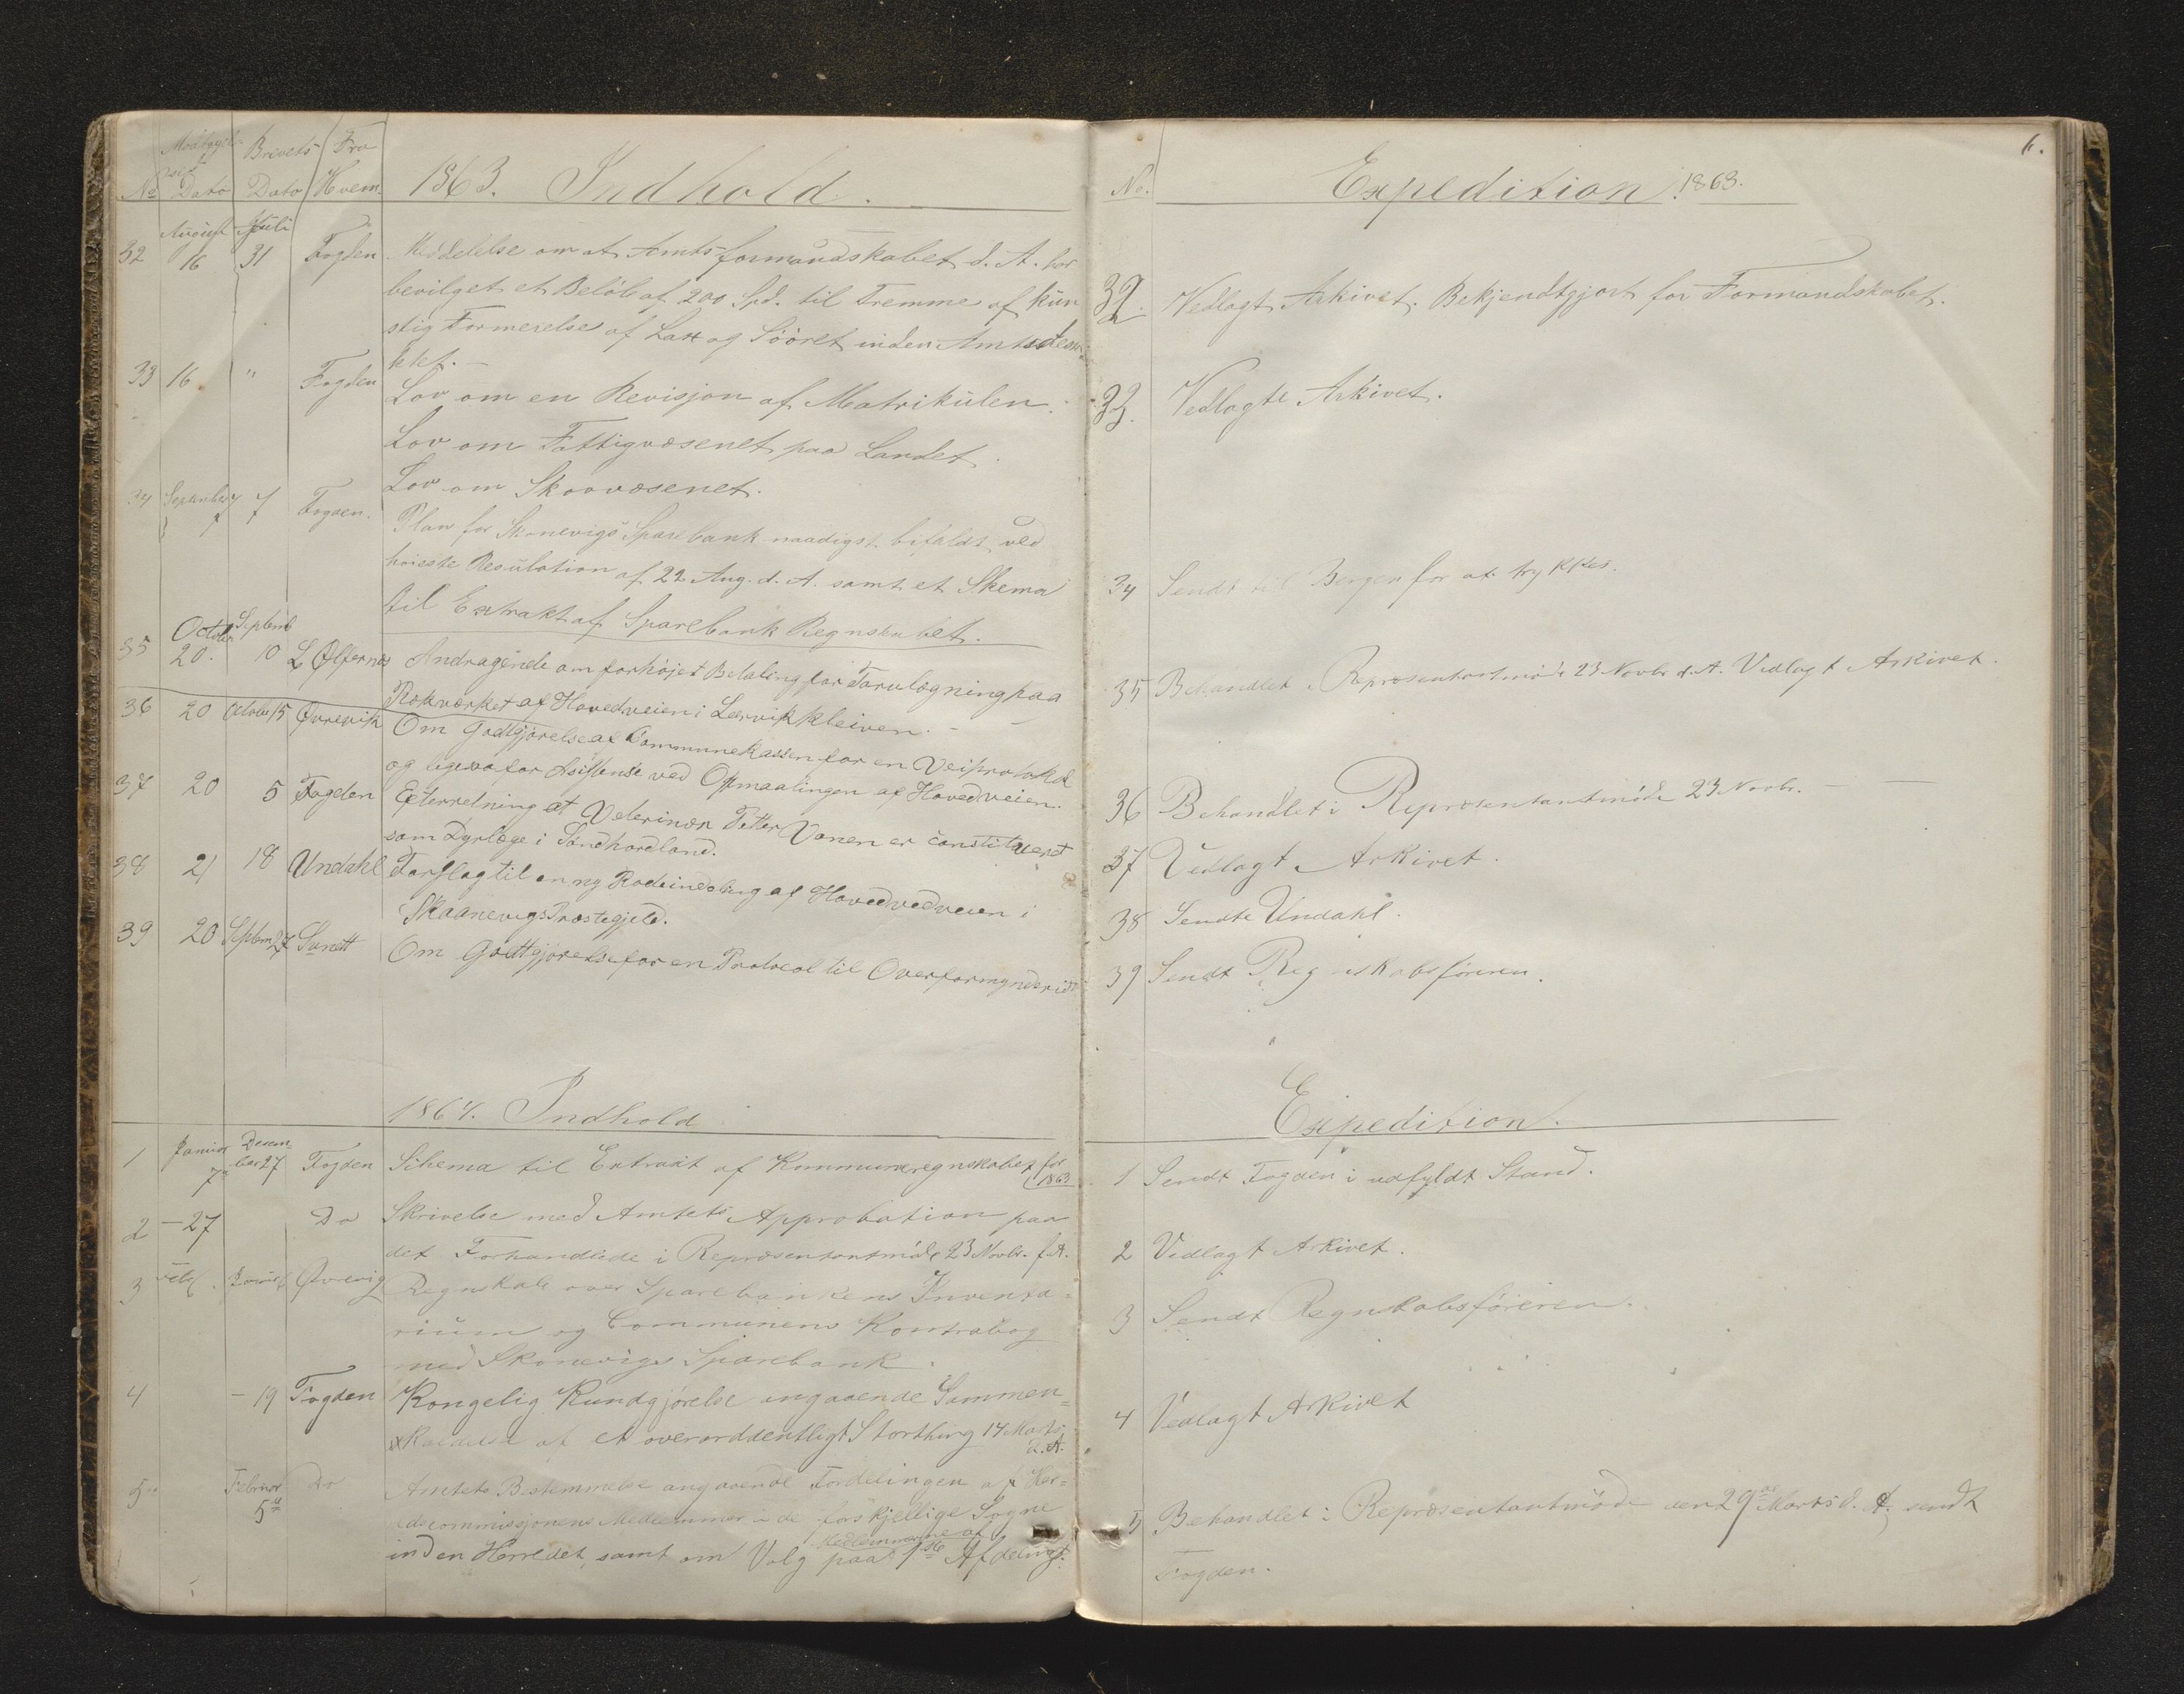 Modtagel- Brevets Fra
sed
No Dato Dato Hvem. 1863. Indhold.
August Juli
32 16 31 Fogden Meddelelse om at Amtsformandskabet d. A. har
bevilget et Beløb af 200 Spd. til Fremme af kun
stig Formerelse af Lax og Sööret inden Amtsdestri
ktet.
33 16. " Fogden Lov om en Revisjon af Matrikülen.
Lov om Fattigvæsenet paa Landet.
Lov om Skovvæsenet.
34 September 7 7 Fogden. Plan for Skonevigs Sparebank naadigst bifaldt ved
høieste Resülution af 22 Aug. d. A. samt et Skema
til Extrakt af Sparebank Regnskabet.
October Septemb
35 20. 10 L Ølfernes Andragende om forhøjet Betaling for Forulægning paa
Rækværket af Hovedveien i Lervikkleiven.
36 20 October 15 Øvrevik Om Godtgjørelse af Communekassen for en Veiprotokol
og ligesa for Asistense ved Opmaalingen af Hovedveien.
37 20 5 Fogden Efterretning at Veterinær Petter Vonen er constitueret
som Dyrlæge i Søndhordland.
38 21 18 Undahl Forslag til en ny Rodeinddeling af Hovedvedveien i
Skaanevigs Præstegjeld.
39 20 Septbm 27 Sunett Om Godtgjørelse for en Protocol til Overformynderiet
1864. Indhold
1 Januar 7de Decem ber 27 Fogden Schema til Extrakt af Kommuneregnskabet for
1863
2 — 27 Do Skrivelse med Amtets Approbation paa
det Forhandlede i Repræsentantmøde 23 Novbr. f. A.
3 Feb. Januar Øvrevig Regnskab over Sparebankens Inventa=
rium og Communens Kontrabog
med Skonevigs Sparebank.
4 — 19 Fogden Kongelig Kundgjørelse angaaende Sammen=
kaldelse af et overorddentligt Storthing 14 Marts
d. A.
5 Februar 5te Do Amtets Bestemmelse angaaende Fordelingen af Her=
redscommissjonens Medlemmer i de forskjellige Sogne
Medlemmerne af
inden Herredet, samt om Valg paa 1ste Afdeling.
6.
No. Expedition. 1863.
32. Vedlagt Arkivet. Bekjendtgjort for Formandskabet.
33. Vedlagte Arkivet.
34 Sendt til Bergen for at trykkes.
35 Behandlet i Repræsentantmøde 23 Novbr d. A. Vedlagt Arkivet.
36 Behandlet i Repræsentantmøde 23 Novbr. —
37 Vedlagt Arkivet.
38 Sendte Undahl.
39 Sendt Regnskabsføreren.
Expedition.
1 Sendt Fogden i udfyldt Stand.
2 Vedlagt Arkivet.
3 Sendt Regnskabsføreren.
4 Vedlagt Arkivet
5 Behandlet i Repræsentantmøde den 29de Marts d. A. sendt
Fogden.